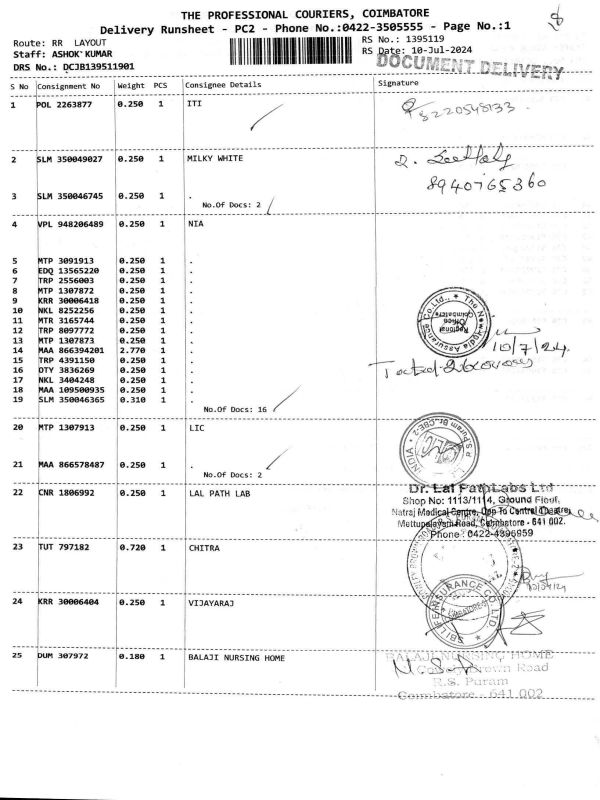 THE PROFESSIONAL COURIERS, COIMBATORE
Delivery Runsheet - PC2 - Phone No.:0422-3505555 - Page No.:1
Route: RR LAYOUT
RS No.: 1395119
Staff: ASHOK KUMAR
RS Date: 10-Jul-2024
DRS No.: DCJB139511901
DOCUMENT DELIVERY
S No Consignment No Weight PCS Consignee Details Signature
1 POL 2263877 0.250 1 ITI
8220548133
2 SLM 350049027 0.250 1 MILKY WHITE
8940765360
3 SLM 350046745 0.250 1 .
No.Of Docs: 2
4 VPL 948206489 0.250 1 NIA
5 MTP 3091913 0.250 1 .
6 EDQ 13565220 0.250 1 .
7 TRP 2556003 0.250 1 .
8 MTP 1307872 0.250 1 .
9 KRR 30006418 0.250 1 .
10 NKL 8252256 0.250 1 .
11 MTR 3165744 0.250 1 .
12 TRP 8097772 0.250 1 .
13 MTP 1307873 0.250 1 .
14 MAA 866394201 2.770 1 .
15 TRP 4391150 0.250 1 .
16 DTY 3836269 0.250 1 .
17 NKL 3404248 0.250 1 .
18 MAA 109500935 0.250 1 .
19 SLM 350046365 0.310 1 .
No.Of Docs: 16
The New India Assurance Co.Ltd.,
Regional Office Coimbatore
10/7/24
20 MTP 1307913 0.250 1 LIC
21 MAA 866578487 0.250 1 .
No.Of Docs: 2
22 CNR 1806992 0.250 1 LAL PATH LAB
Dr. Lal PathLabs Ltd
Shop No: 1113/1114, Ground Floor,
Natraj Medical Centre, Opp To Central Theatre,
Mettupalayam Road, Coimbatore - 641 002.
Phone : 0422-4396959
23 TUT 797182 0.720 1 CHITRA
24 KRR 30006404 0.250 1 VIJAYARAJ
SBI LIFE INSURANCE CO. LTD.
25 DUM 307972 0.180 1 BALAJI NURSING HOME
BALAJI NURSING HOME
Cowley Brown Road
R.S. Puram
Coimbatore - 641 002